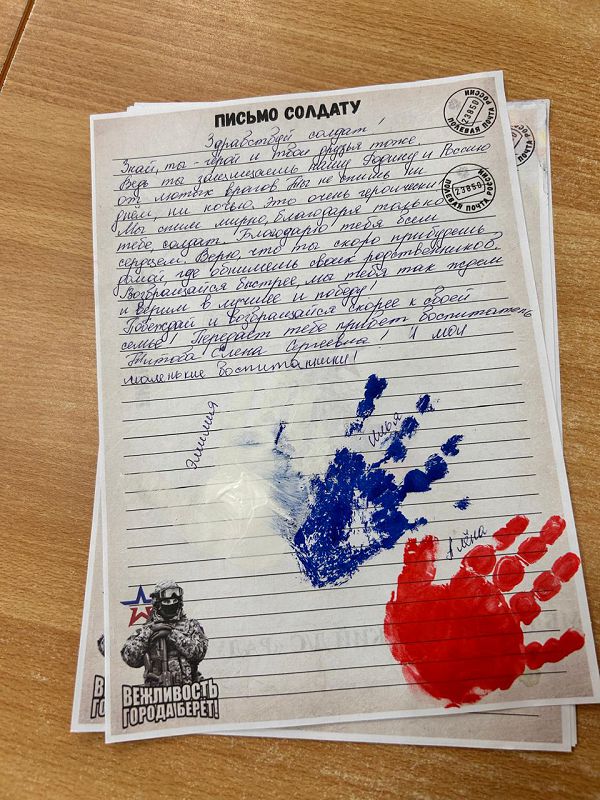 ПИСЬМО СОЛДАТУ
ПОЛЕВАЯ ПОЧТА РОССИИ
23850
Здравствуй солдат!
Знай, ты - герой и твои друзья тоже.
Ведь ты защищаешь нашу Родину и Россию
от лютых врагов. Ты не спишь ни
днём, ни ночью, это очень героически
ПОЛЕВАЯ ПОЧТА РОССИИ
23850
Мы спим мирно, благодаря только
тебе, солдат. Благодарю тебя всем
сердцем. Верю, что ты скоро прибудешь
домой, где обнимешь своих родственников.
Возвращайся быстрее, мы тебя так ждем
и верим в лучшее и победу!
Побеждай и возвращайся скорее к своей
семье! Передаёт тебе привет воспитатель
Титова Елена Сергеевна! И мои
маленькие воспитанники!
Эмилия
Илья
Алёна
ВЕЖЛИВОСТЬ
ГОРОДА БЕРЁТ!